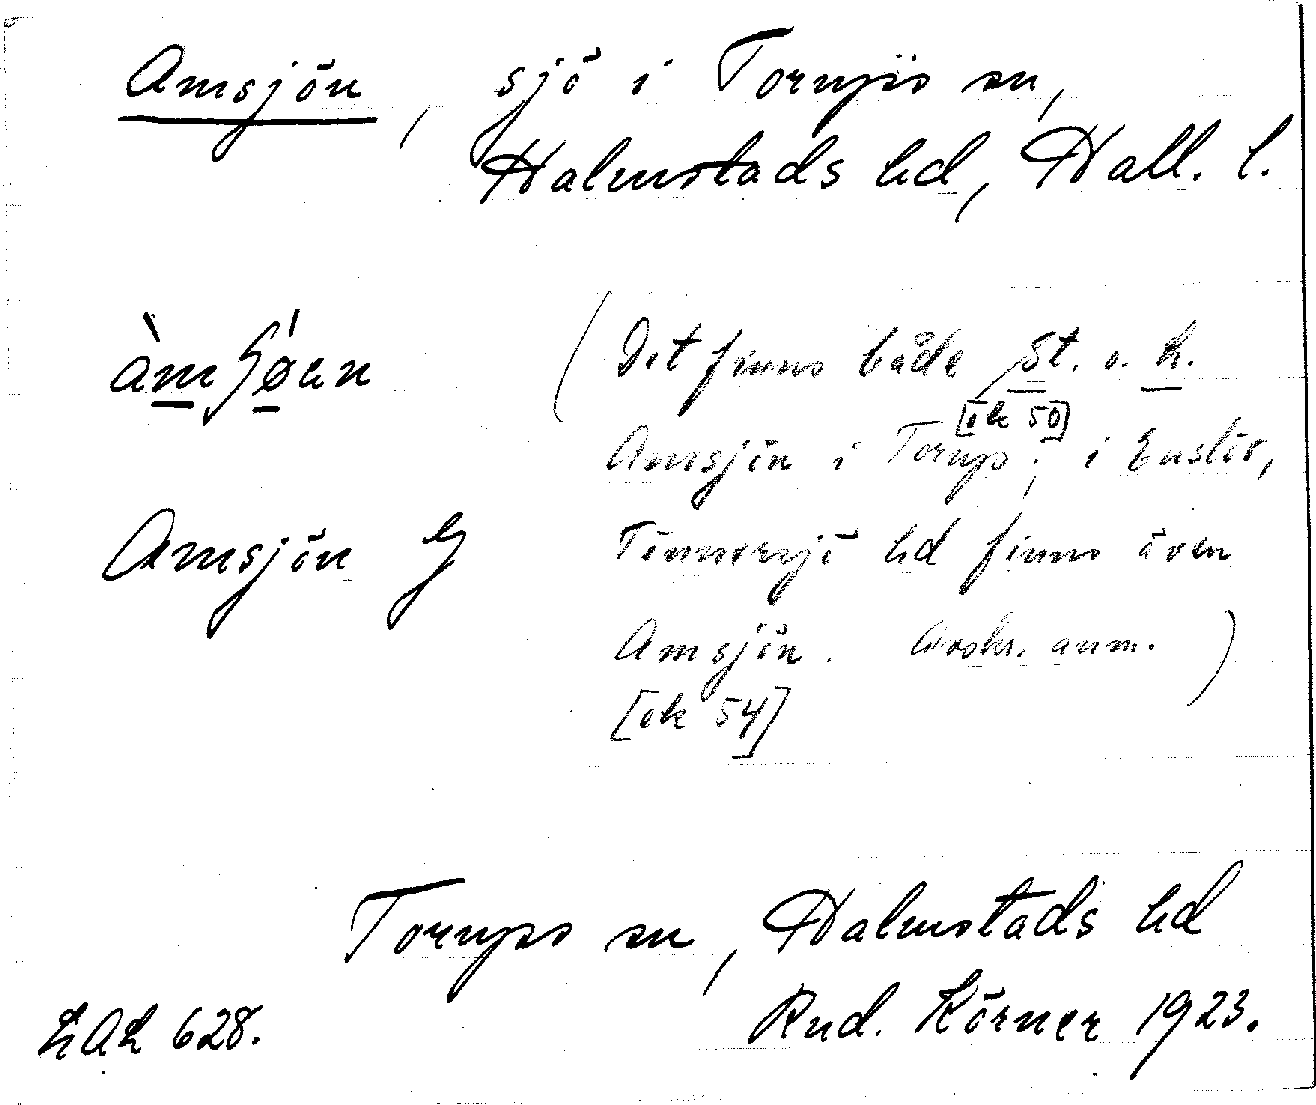 Amsjön, sjö i Torups sn,
Halmstads hd, Hall. l.
àmʃǿən
(Det finns både St. o. L.
[ek 50]
Amsjön i Torups; i Enslöv,
Amsjön G
Tönnersjö hd finns även
Amsjön. Avskr. anm.)
[ek 54]
Torups sn, Halmstads hd
LAL 628.
Rud. Körner 1923.